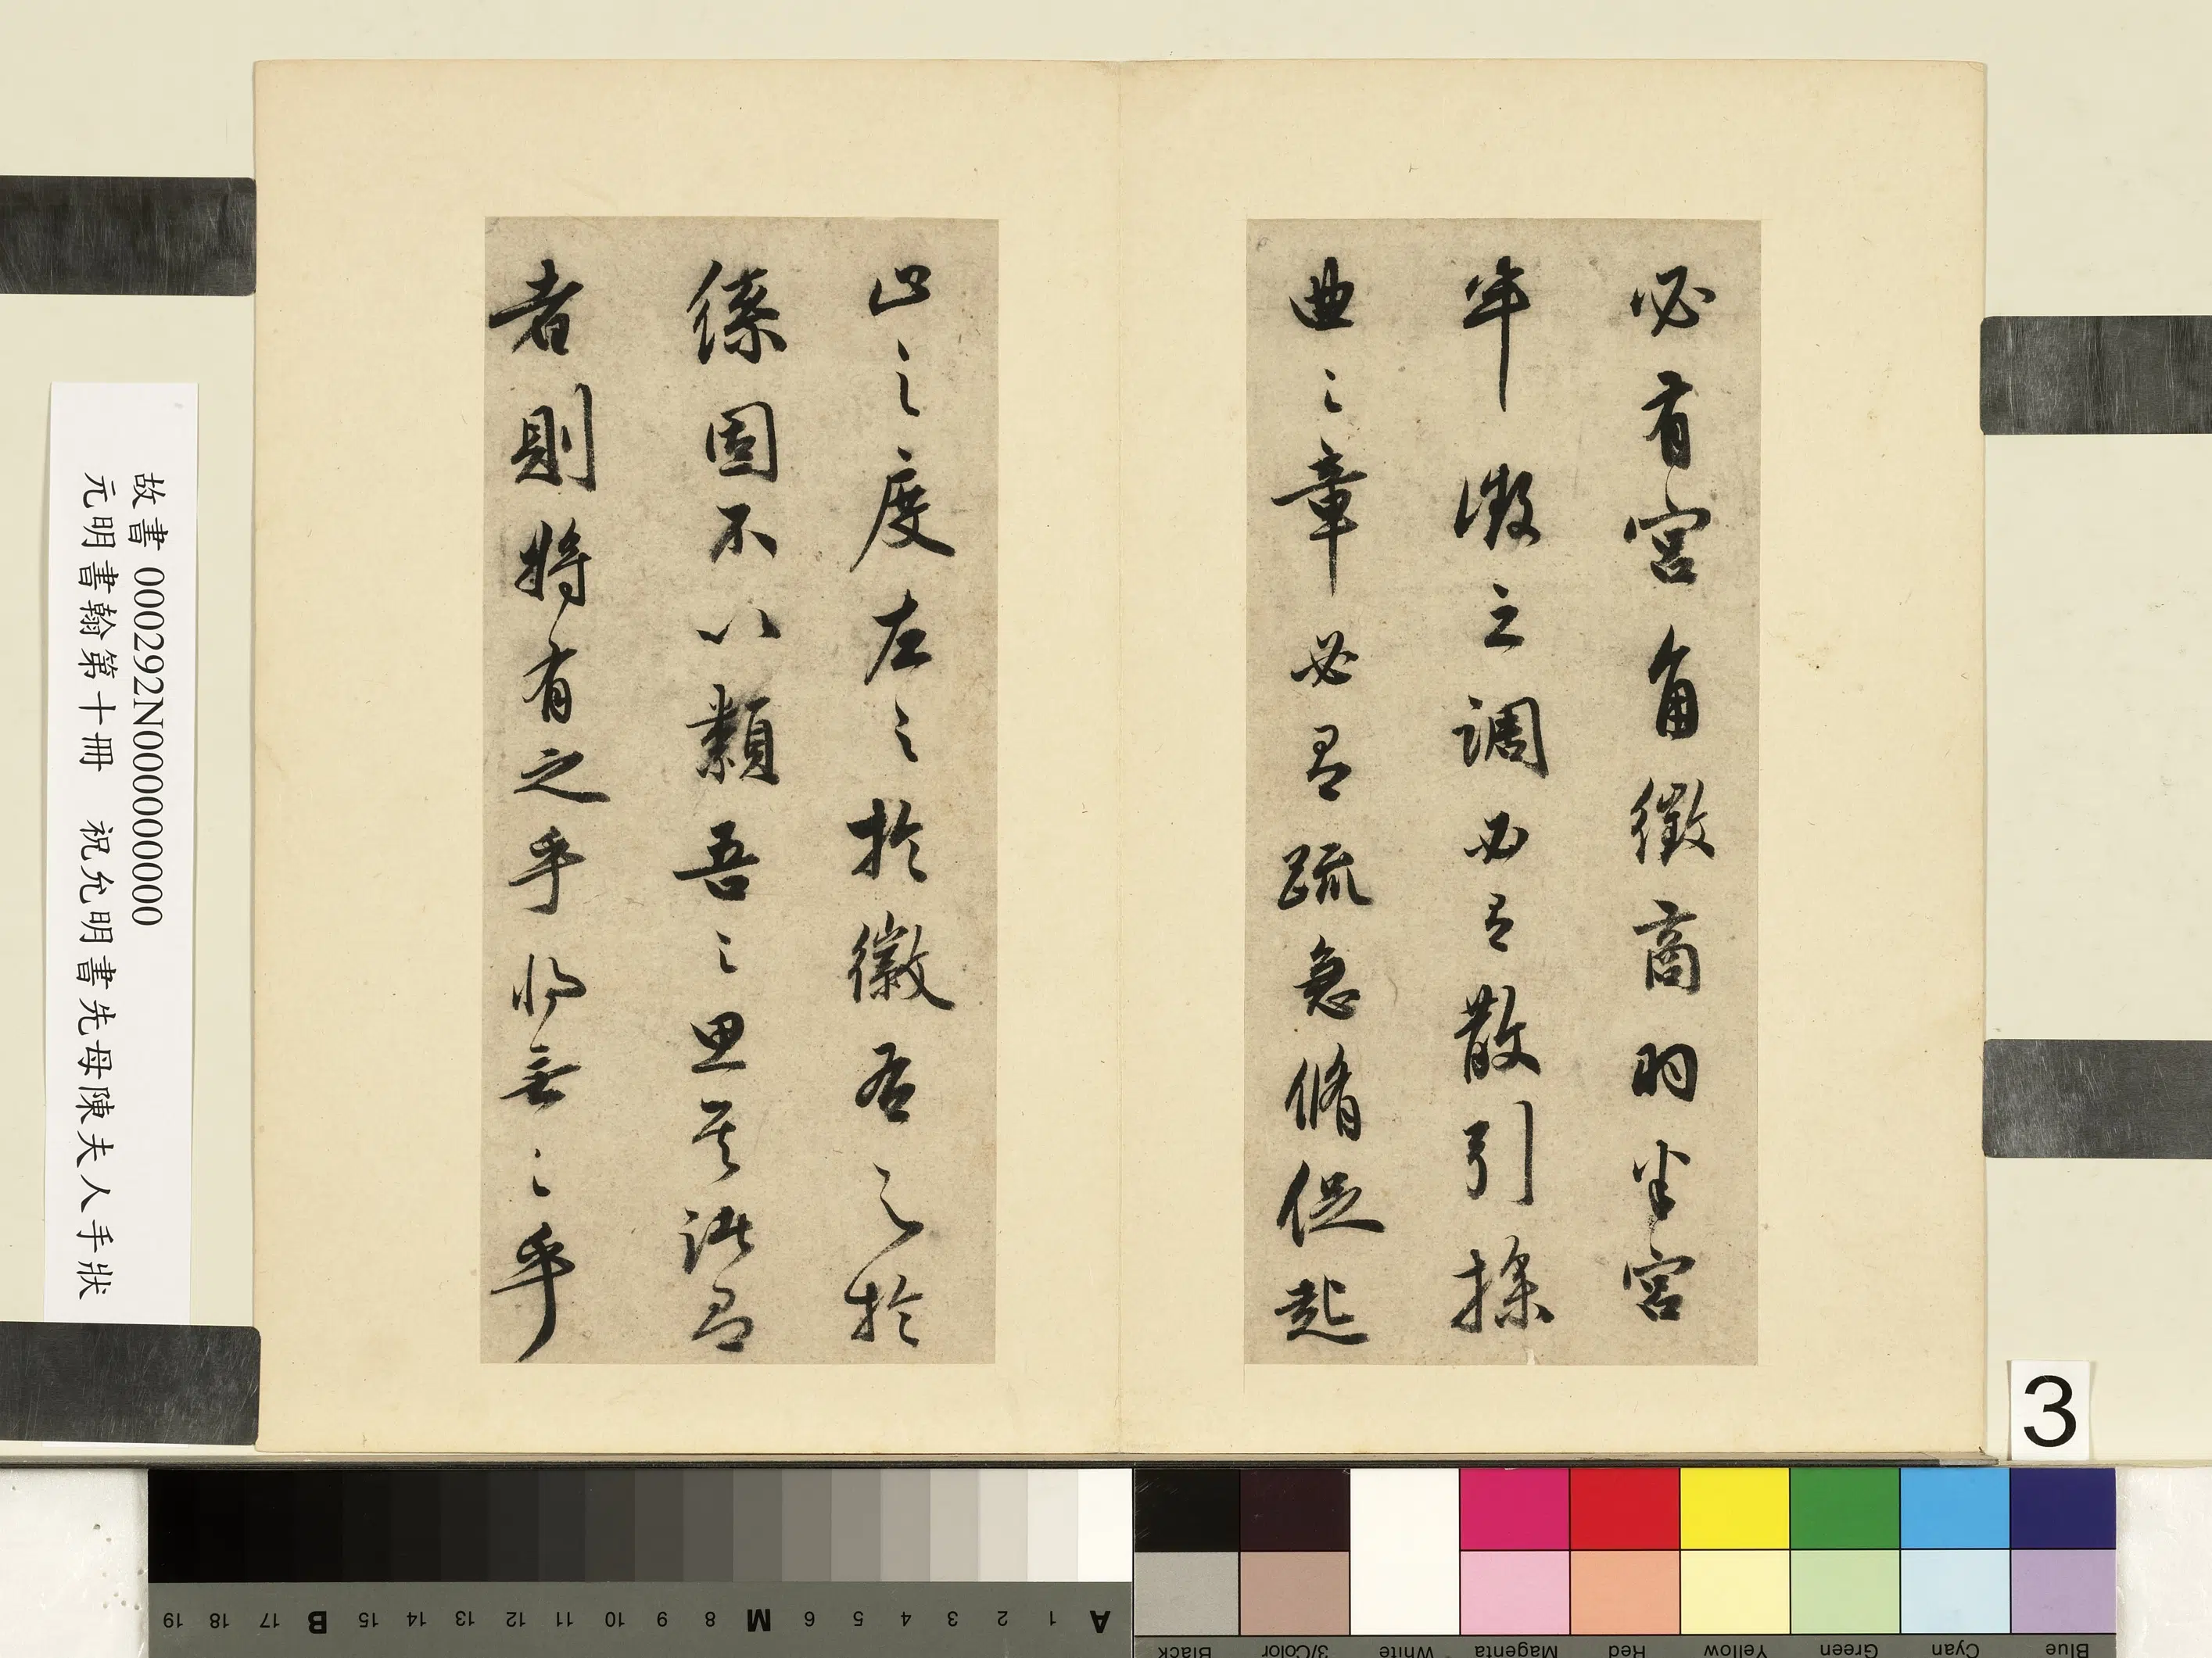 必有宮角徵商羽半宮
半徵之調必有散引操
曲之章必有疏急脩促起
止之度左之於徽右之於
絛固不以類吾之思其誰有
者則將有之乎將無之乎
故書 000292N000000000
元明書翰第十冊 祝允明書先母陳夫人手狀
3
19 18 17 B 16 15 14 13 12 11 10 9 8 M 7 6 5 4 3 2 1 A
Black 3/Color White Magenta Red Yellow Green Cyan Blue